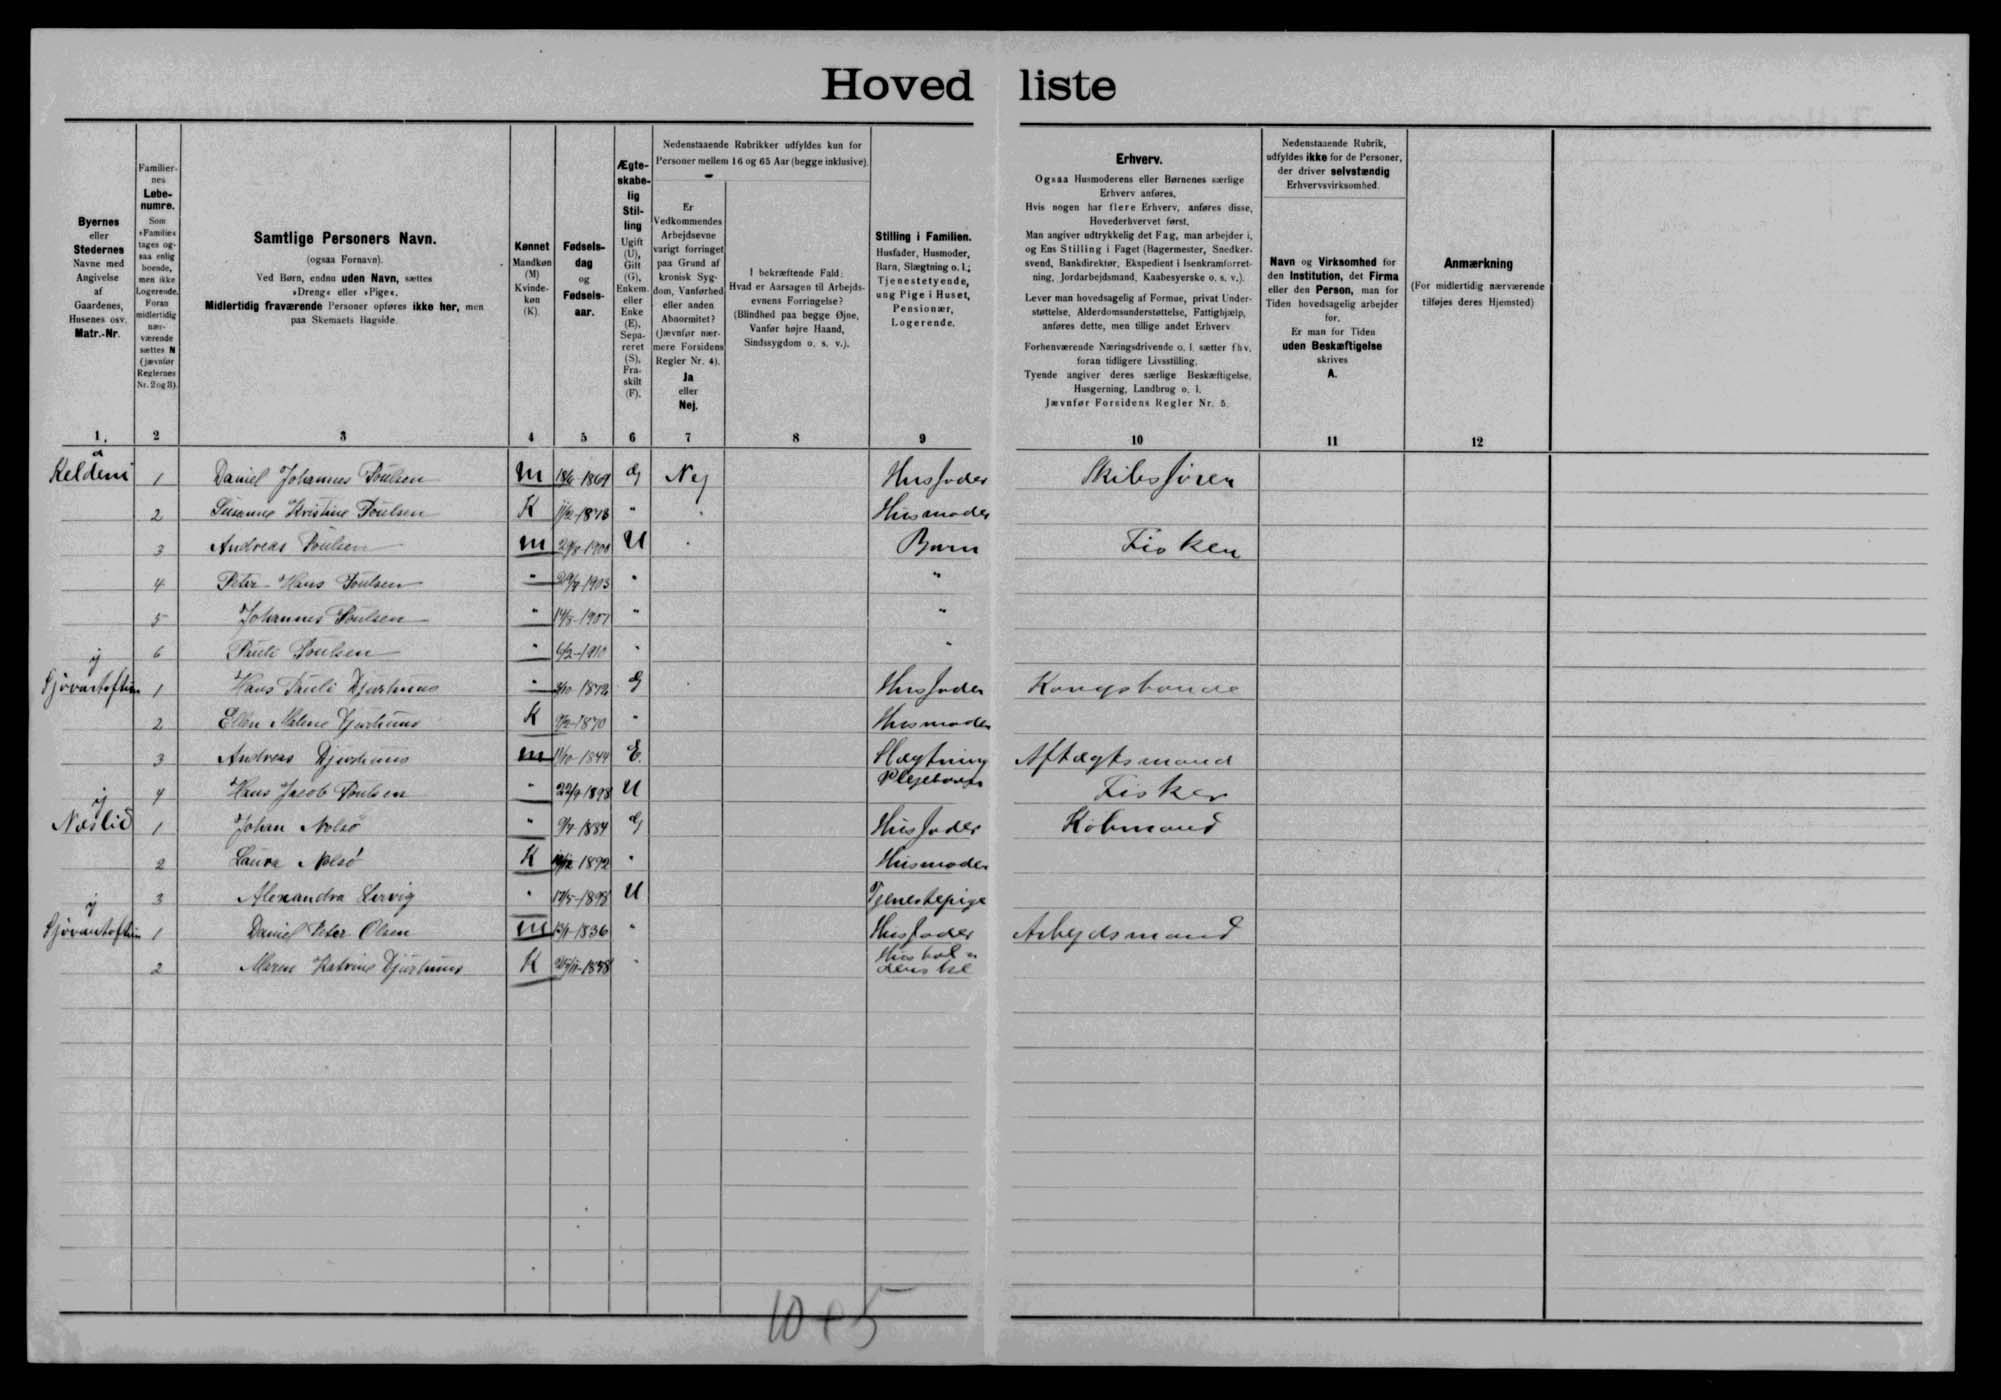 Hoved liste
Byernes
eller
Stedernes
Navne med
Angivelse
af
Gaardenes,
Husenes osv.
Matr.-Nr.
Familier-
nes
Løbe-
numre.
Som
»Familie«
tages og-
saa enlig
boende,
men ikke
Logerende.
Foran
midlertidig
nær-
værende
sættes N
(jævnfør
Reglernes
Nr. 2 og 3).
Samtlige Personers Navn.
(ogsaa Fornavn).
Ved Børn, endnu uden Navn, sættes
»Dreng« eller »Pige«.
Midlertidig fraværende Personer opføres ikke her, men
paa Skemaets Bagside.
Kønnet
Mandkøn
(M)
Kvinde-
køn
(K).
Fødsels-
dag
og
Fødsels-
aar.
Ægte-
skabe-
lig
Stil-
ling
Ugift
(U),
Gift
(G),
Enkem.
eller
Enke
(E),
Sepa-
reret
(S),
Fra-
skilt
(F).
Nedenstaaende Rubrikker udfyldes kun for
Personer mellem 16 og 65 Aar (begge inklusive).
Er
Vedkommendes
Arbejdsevne
varigt forringet
paa Grund af
kronisk Syg-
dom, Vanførhed
eller anden
Abnormitet?
(Jævnfør nær-
mere Forsidens
Regler Nr. 4).
Ja
eller
Nej.
I bekræftende Fald:
Hvad er Aarsagen til Arbejds-
evnens Forringelse?
(Blindhed paa begge Øjne,
Vanfør højre Haand,
Sindssygdom o. s. v.).
Stilling i Familien.
Husfader, Husmoder,
Barn, Slægtning o. l.;
Tjenestetyende,
ung Pige i Huset,
Pensionær,
Logerende.
Erhverv.
Ogsaa Husmoderens eller Børnenes særlige
Erhverv anføres.
Hvis nogen har flere Erhverv, anføres disse,
Hovederhvervet først.
Man angiver udtrykkelig det Fag, man arbejder i,
og Ens Stilling i Faget (Bagermester, Snedker-
svend, Bankdirektør, Ekspedient i Isenkramforret-
ning, Jordarbejdsmand, Kaabesyerske o. s. v.).
Lever man hovedsagelig af Formue, privat Under-
støttelse, Alderdomsunderstøttelse, Fattighjælp,
anføres dette, men tillige andet Erhverv
Forhenværende Næringsdrivende o. l. sætter fhv.
foran tidligere Livsstilling.
Tyende angiver deres særlige Beskæftigelse,
Husgerning, Landbrug o. l.
Jævnfør Forsidens Regler Nr. 5.
Nedenstaaende Rubrik,
udfyldes ikke for de Personer,
der driver selvstændig
Erhvervsvirksomhed.
Navn og Virksomhed for
den Institution, det Firma
eller den Person, man for
Tiden hovedsagelig arbejder
for.
Er man for Tiden
uden Beskæftigelse
skrives
A.
Anmærkning
(For midlertidig nærværende
tilføjes deres Hjemsted)
1. 2 3 4 5 6 7 8 9 10 11 12
á
Keldeni 1 Daniel Johannes Poulsen M 1869 G Nej Husfader Skibsfører
2 Susanne Kristine Poulsen K " " Husmoder
3 Andreas Poulsen M U " Barn Fisker
4 Peter Hans Poulsen " 29/8-1903 " "
5 Johannes Poulsen " 14/8-1907 " "
6 Pauli Poulsen " 6/2-1910 " "
í
1 Hans Pauli Djurhuus " 1872 G " Husfader Kongsbonde
2 Ellen Malene Djurhuus K 1870 " Husmoder
3 Andreas Djurhuus M 1844 E. Slægtning Aftægtsmand
4 Hans Jacob Poulsen " 22/9 1898 U Plejebarn Fisker
í
Næslid 1 Johan Nolsø " 9/7-1884 G Husfader Købmand
2 Laura Nolsø K 1892 " Husmoder
3 Alexandra Lervig " 17/5-1898 U Tjenestepige
í
1 Daniel Peter Olsen M 1836 " Husfader Arbejdsmand
2 Maren Katrine Djurhuus K " Hushol-
derske
10 + 5